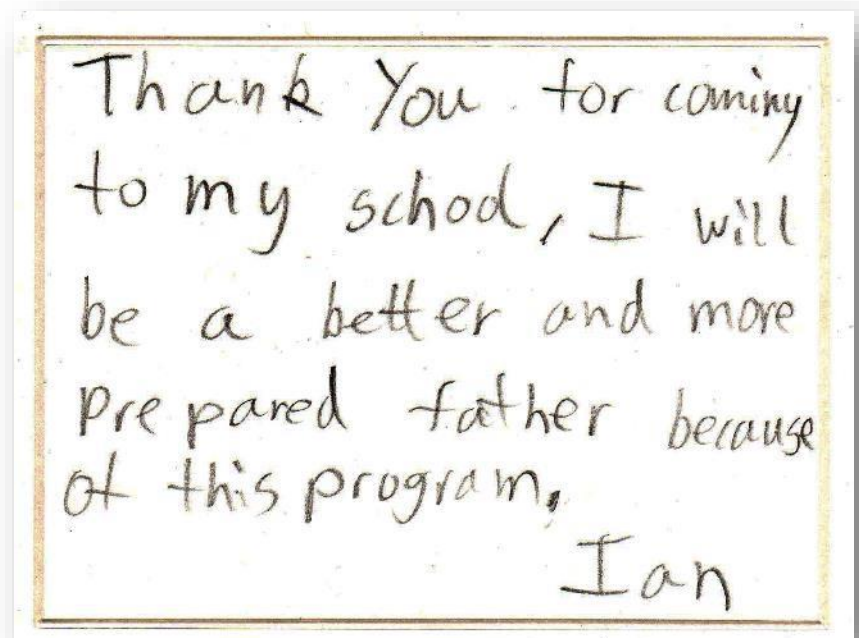 Thank You for coming
to my school, I will
be a better and more
prepared father because
of this program.
Ian